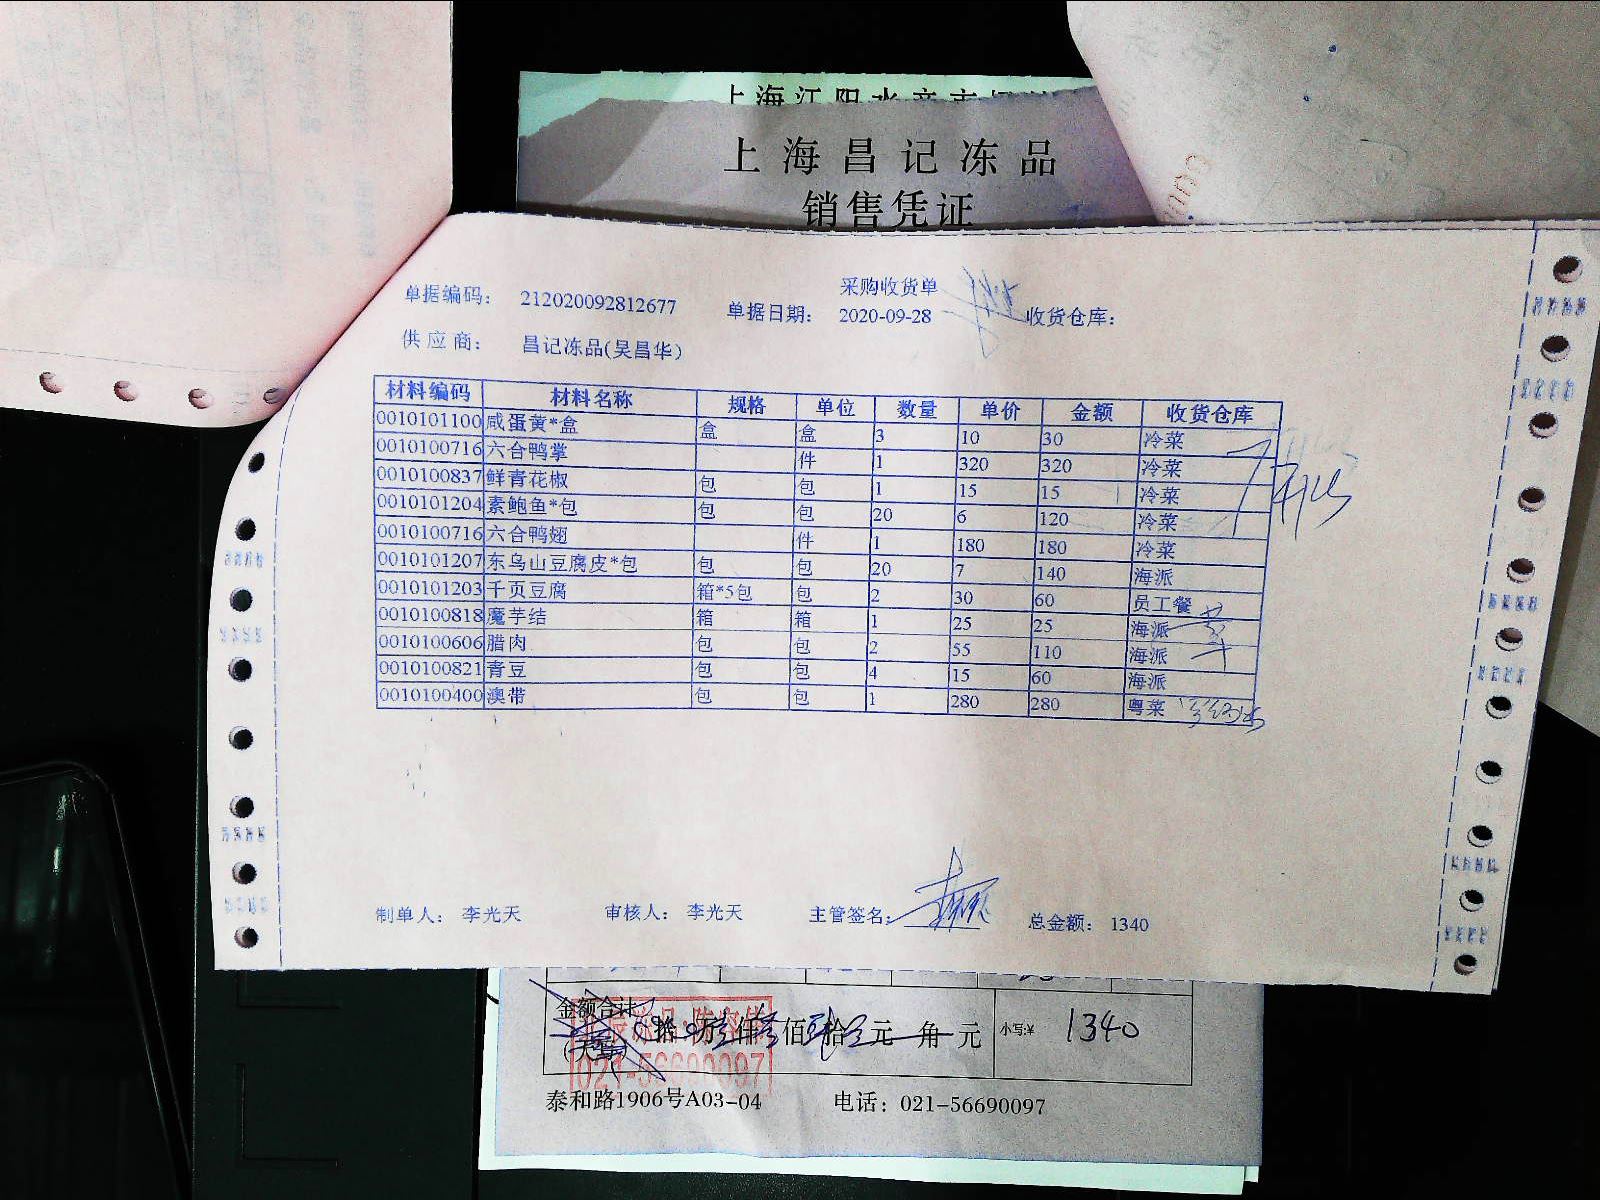 上海昌记冻品
销售凭证
采购收货单
单据编码: 212020092812677 单据日期: 2020-09-28 收货仓库:
供应商: 昌记冻品(吴昌华)
材料编码 材料名称 规格 单位 数量 单价 金额 收货仓库
0010101100 咸蛋黄*盒 盒 盒 3 10 30 冷菜
0010100716 六合鸭掌 件 1 320 320 冷菜
0010100837 鲜青花椒 包 包 1 15 15 冷菜
0010101204 素鲍鱼*包 包 包 20 6 120 冷菜
0010100716 六合鸭翅 件 1 180 180 冷菜
0010101207 东乌山豆腐皮*包 包 包 20 7 140 海派
0010101203 千页豆腐 箱*5包 包 2 30 60 员工餐
0010100818 魔芋结 箱 箱 1 25 25 海派
0010100606 腊肉 包 包 2 55 110 海派
0010100821 青豆 包 包 4 15 60 海派
0010100400 澳带 包 包 1 280 280 粤菜
制单人: 李光天 审核人: 李光天 主管签名: 总金额: 1340
金额合计 拾 万 仟 佰 拾 元 角 元 小写:¥ 1340
(大写)
021-56690097
泰和路1906号A03-04 电话: 021-56690097